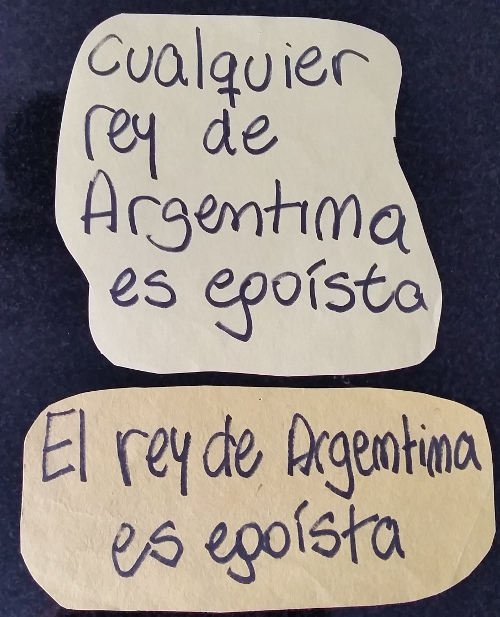 Cualquier
rey de
Argentina
es egoísta
El rey de Argentina
es egoísta